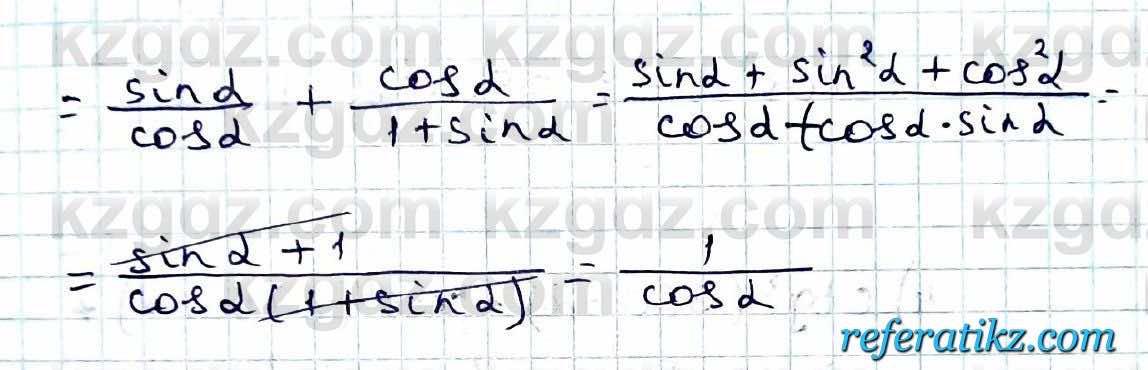 kzgdz.com kzgdz.com kzgdz
= sinα/cosα + cosα/(1+sinα) = (sinα + sin²α + cos²α)/(cosα + cosα·sinα) =
kzgdz.com
kzgdz.com kzgdz.com kzgd
= (sinα + 1)/(cosα(1+sinα)) = 1/cosα
referatikz.com